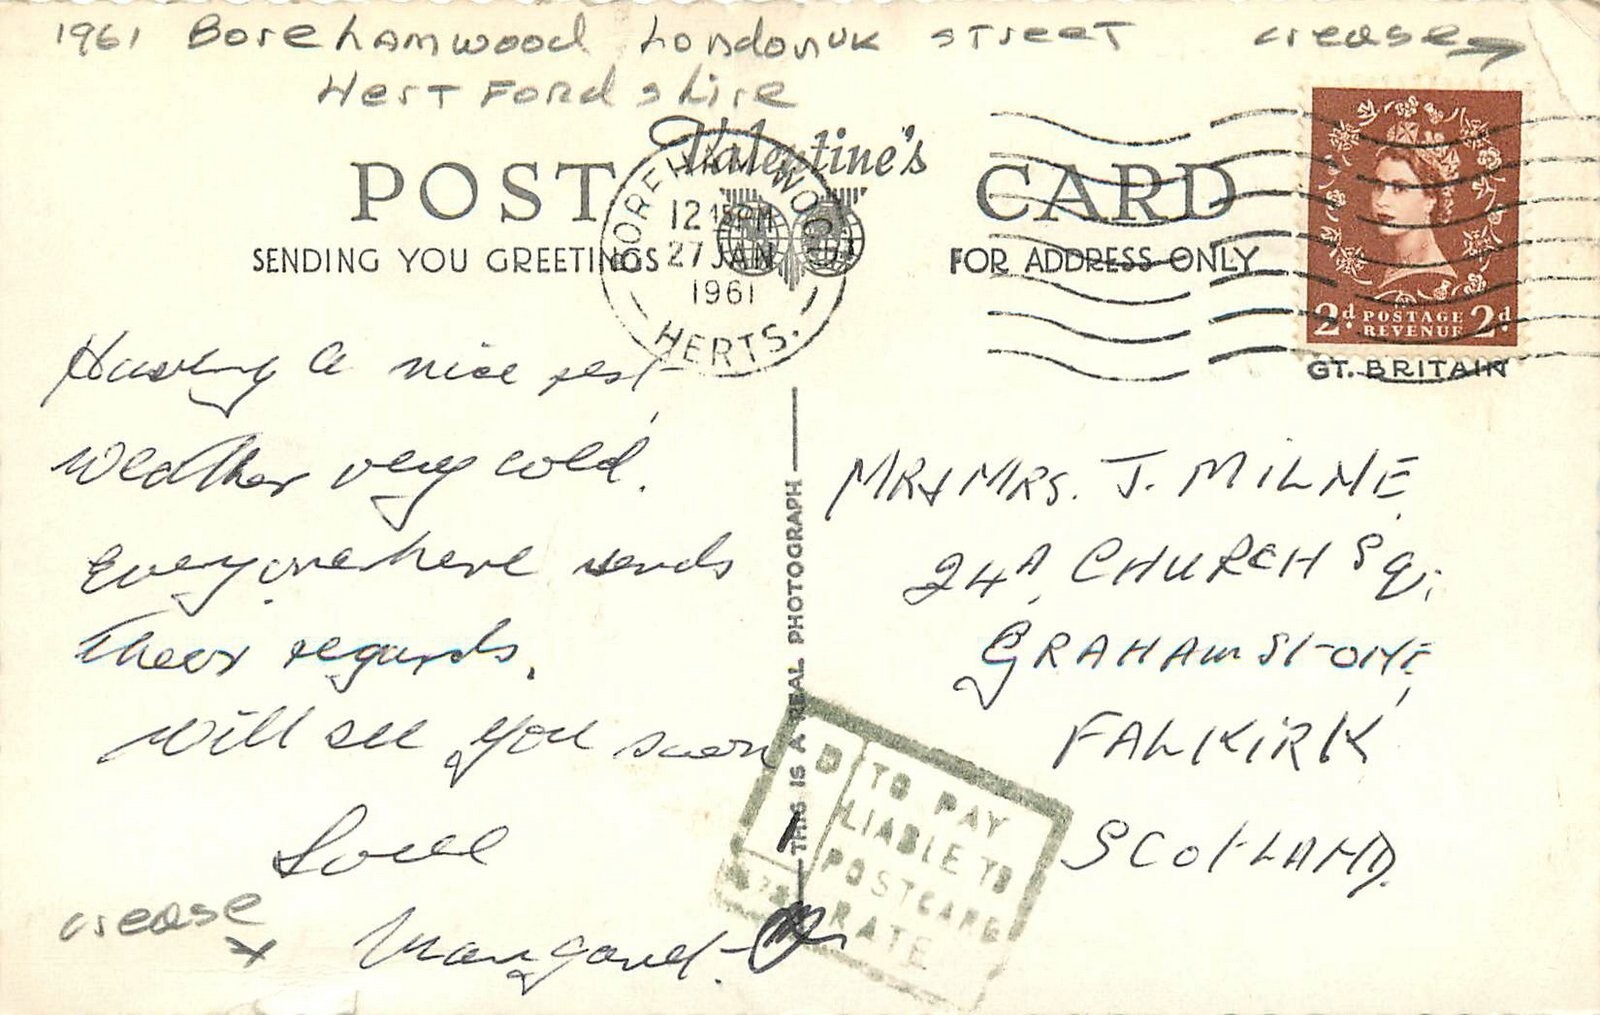 1961 Borehamwood London UK street crease
Hertfordshire
Valentine's
POST CARD
SENDING YOU GREETINGS
FOR ADDRESS ONLY
BOREHAMWOOD
12 15 PM
27 JAN
1961
HERTS.
2d POSTAGE REVENUE 2d
GT. BRITAIN
Having a nice rest,
weather very cold.
Everyone here sends
their regards.
Will see you soon
Love
Margaret.
crease
THIS IS A REAL PHOTOGRAPH
MR & MRS. J. MILNE,
24A, CHURCH Sq.,
GRAHAMSTONE,
FALKIRK
SCOTLAND.
D
1
TO PAY
LIABLE TO
POSTCARD
RATE